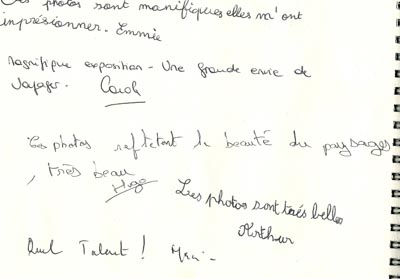 photos sont manifiques elles m'ont
impresionner. Emmie
Magnifique exposition - Une grande envie de
voyager. Carol
Ces photos reflètent la beauté du paysages
, très beau
Hugo
Les photos sont trés belles
Arthur
Quel Talent ! Merci